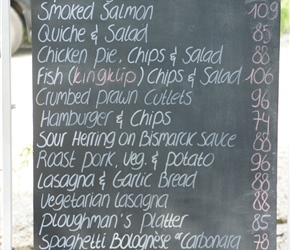 Smoked Salmon 109
Quiche & Salad 85
Chicken Pie, Chips & Salad 88
Fish (kingklip) Chips & Salad 106
Crumbed prawn Cutlets 96
Hamburger & Chips 74
Sour Herring on Bismarck Sauce 88
Roast pork, veg. & potato 96
Lasagna & Garlic Bread 88
Vegetarian lasagna 88
Ploughman's Platter 85
Spaghetti Bolognèse or Carbonara 78